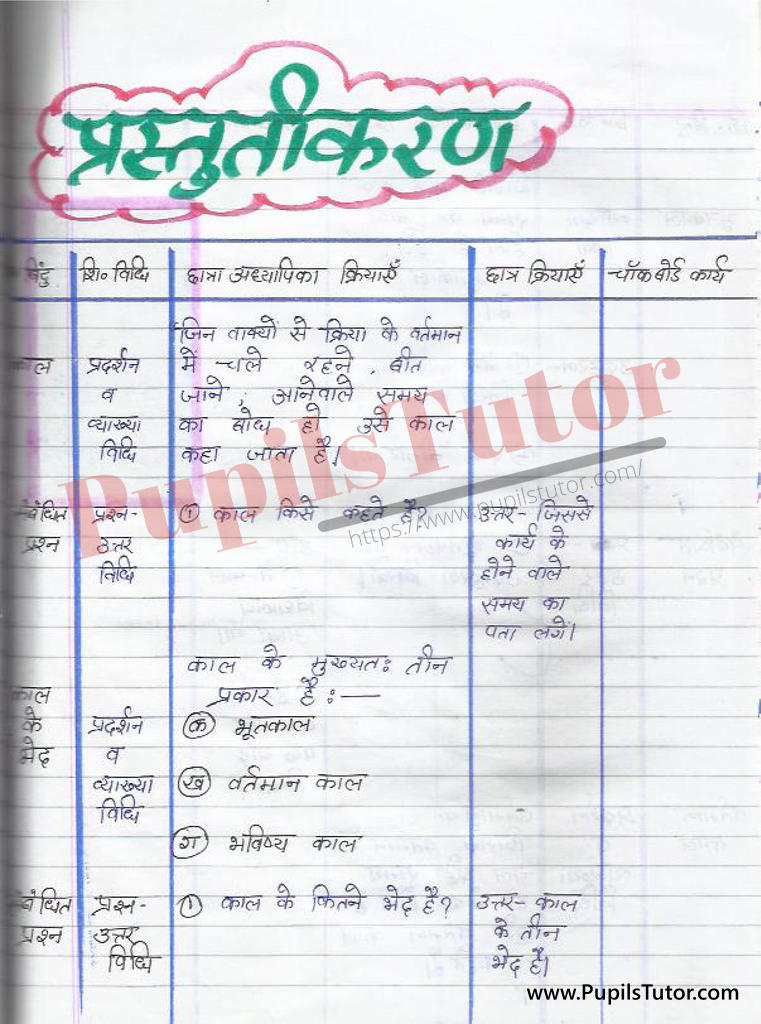 प्रस्तुतीकरण
बिंदु शि॰ विधि छात्रा अध्यापिका क्रियाएँ छात्र क्रियाएँ चॉकबोर्ड कार्य
जिन वाक्यों से क्रिया के वर्तमान
काल प्रदर्शन में चले रहने, बीत
व जाने, आनेवाले समय
व्याख्या का बोध हो उसे काल
विधि कहा जाता है।
PupilsTutor
https://www.pupilstutor.com/
संबंधित प्रश्न- ① काल किसे कहते है? उत्तर- जिससे
प्रश्न उत्तर कार्य के
विधि होने वाले
समय का
पता लगें।
काल के मुख्यतः तीन
काल प्रकार है:—
के प्रदर्शन (क) भूतकाल
भेद व
व्याख्या (ख) वर्तमान काल
विधि
(ग) भविष्य काल
संबंधित प्रश्न- ① काल के कितने भेद है? उत्तर- काल
प्रश्न उत्तर के तीन
विधि भेद है।
www.PupilsTutor.com